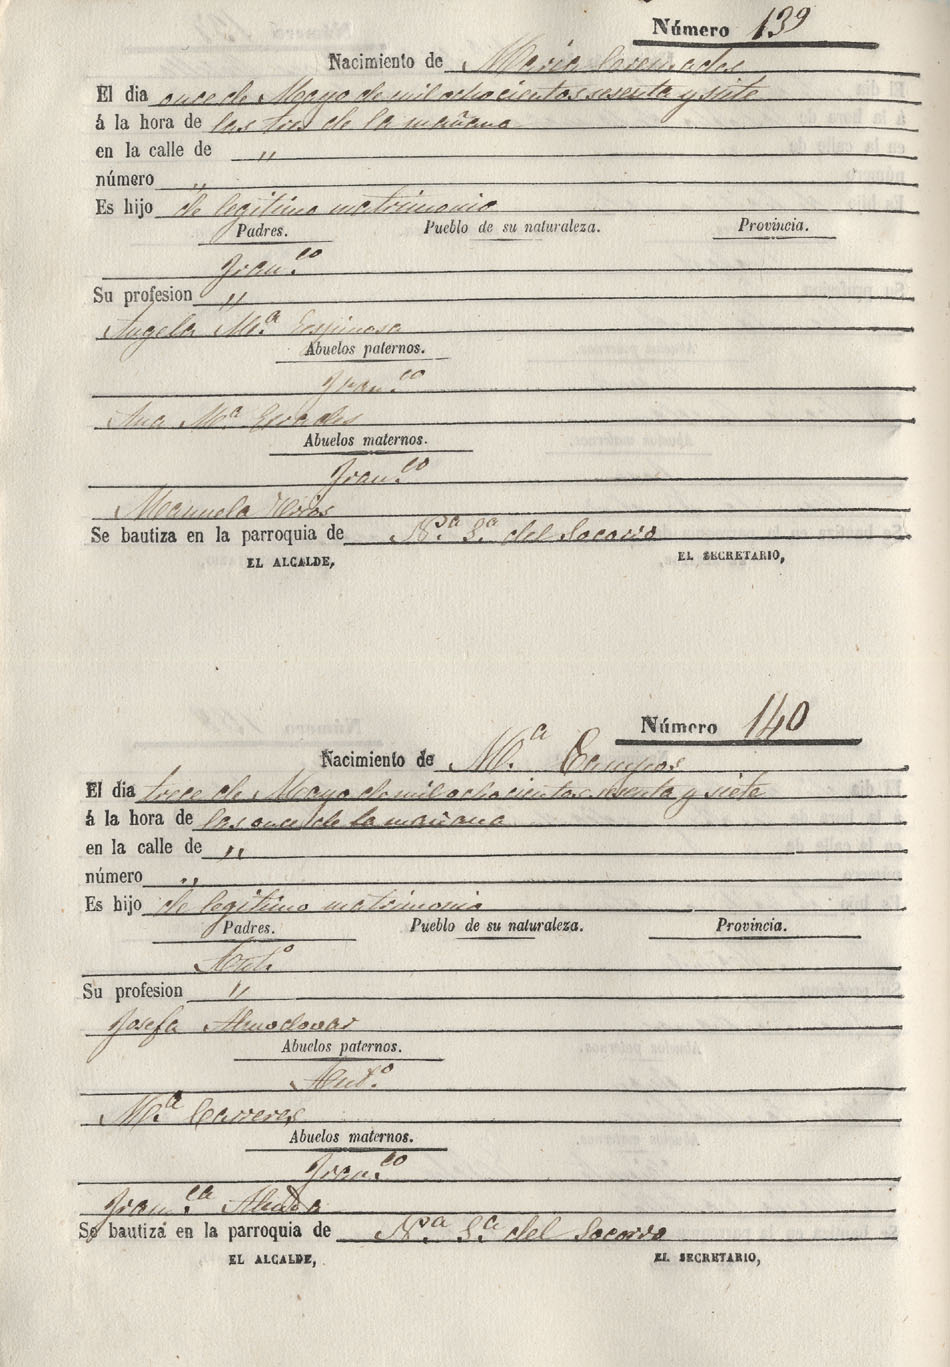 Número 139
Nacimiento de María
El dia once de Mayo de mil ochocientos sesenta y siete
á la hora de las tres de la mañana
en la calle de "
número "
Es hijo de legitimo matrimonio
Padres. Pueblo de su naturaleza. Provincia.
Fran.co
Su profesion "
Angela M.a Espinosa
Abuelos paternos.
Fran.co
Ana M.a
Abuelos maternos.
Fran.co
Manuela
Se bautiza en la parroquia de N.a S.a del Socorro
EL ALCALDE, EL SECRETARIO,
Número 140
Nacimiento de M.a Campos
El dia trece de Mayo de mil ochocientos sesenta y siete
á la hora de las once de la mañana
en la calle de "
número "
Es hijo de legitimo matrimonio
Padres. Pueblo de su naturaleza. Provincia.
Ant.o
Su profesion "
Josefa Almodovar
Abuelos paternos.
Ant.o
M.a
Abuelos maternos.
Fran.co
Fran.ca
Se bautiza en la parroquia de N.a S.a del Socorro
EL ALCALDE, EL SECRETARIO,